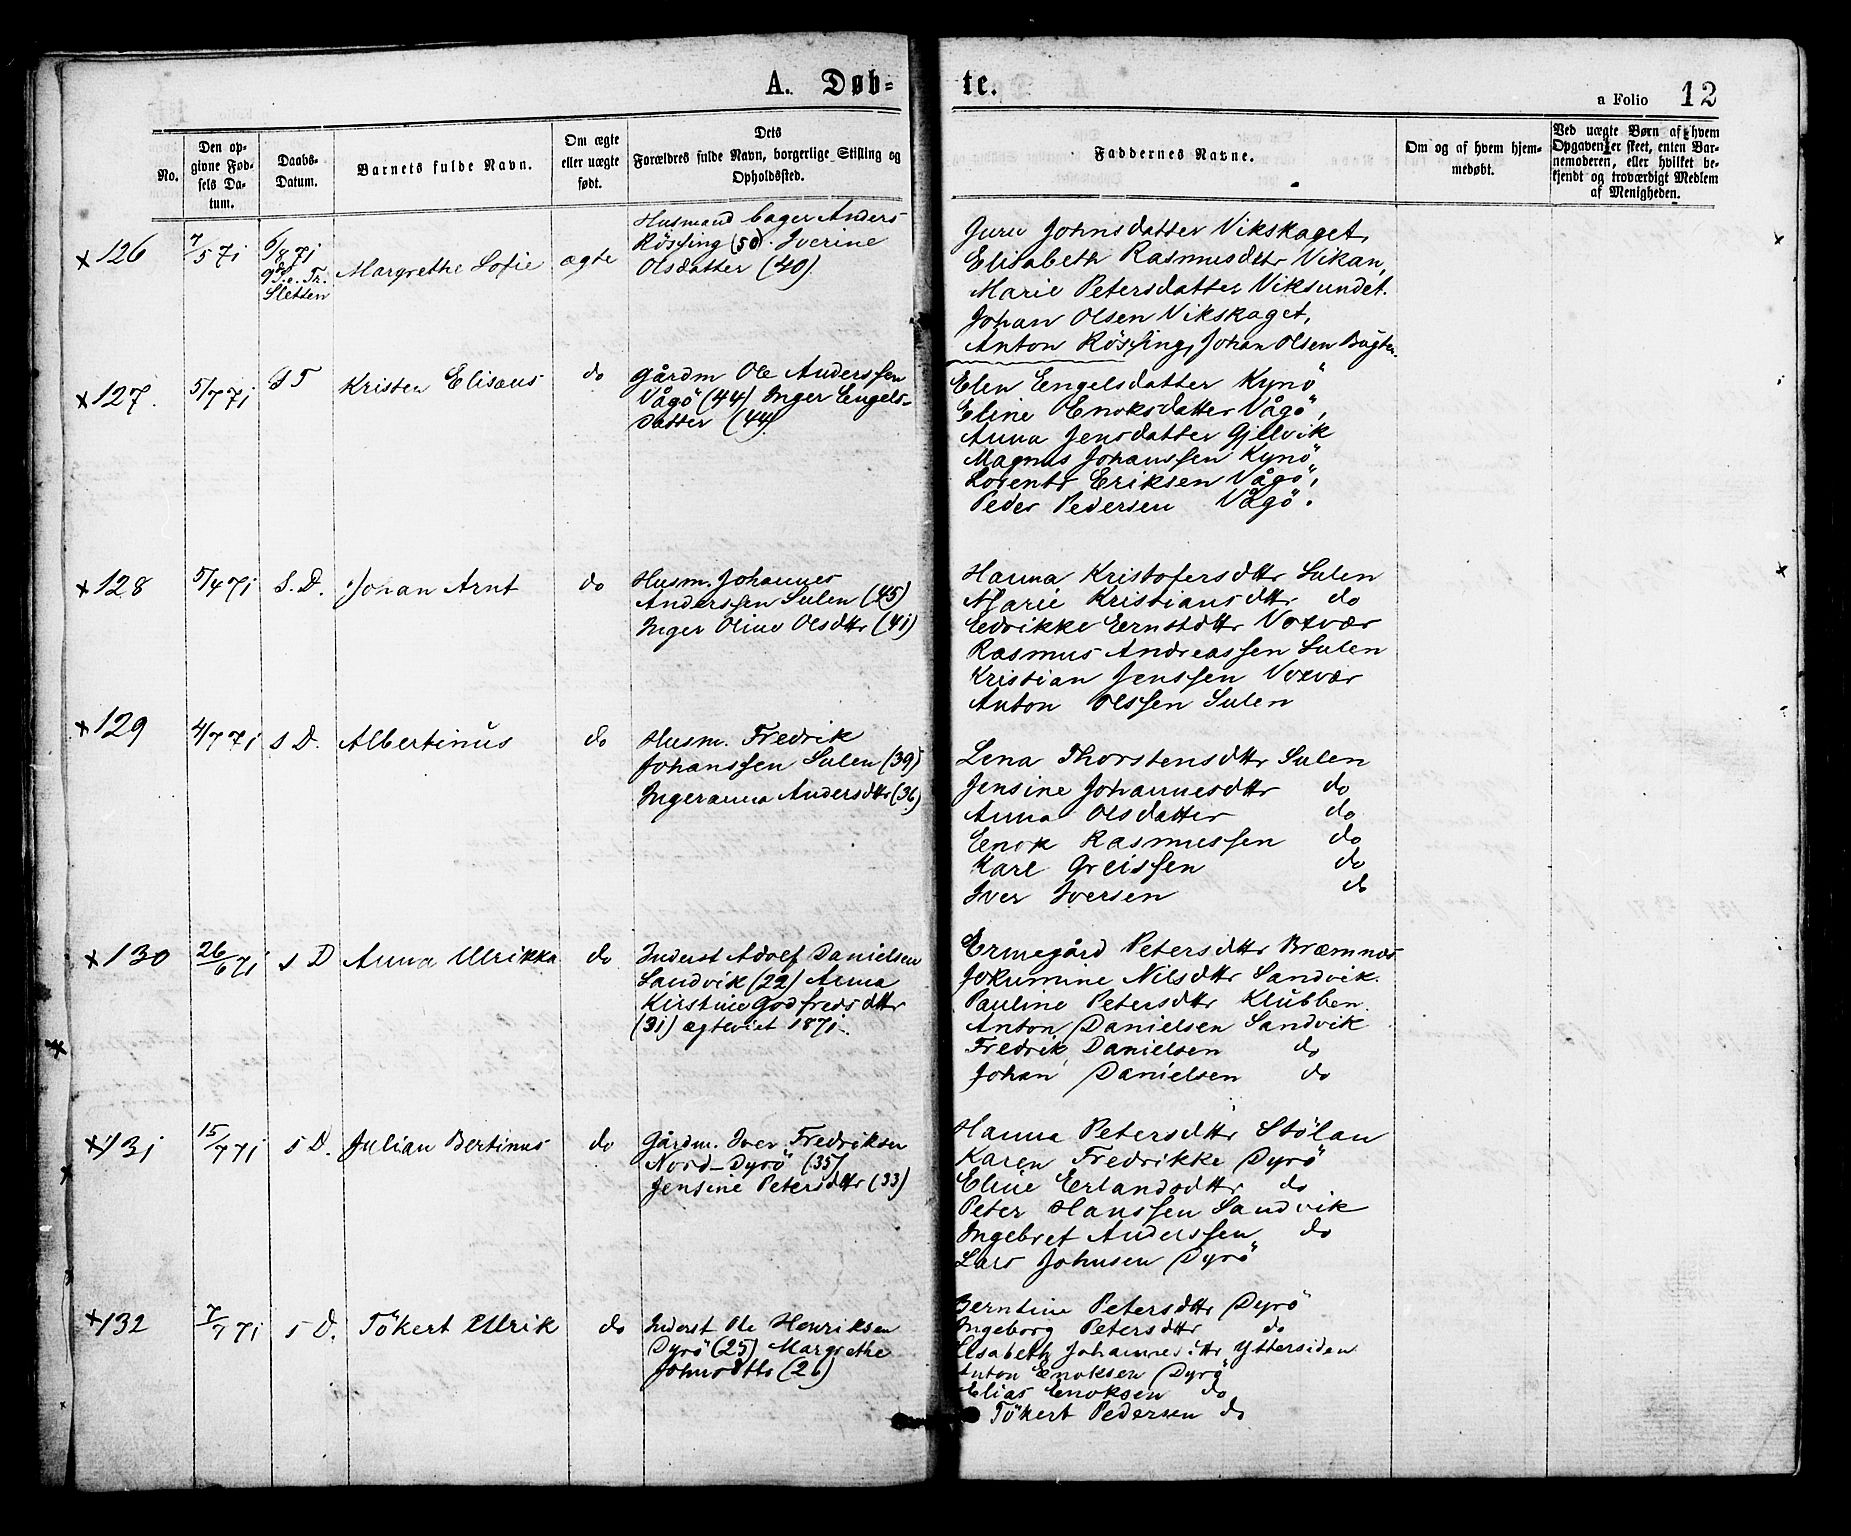 A. Døb-
te.
a Folio 12
No.
Den op-
givne Fød-
sels Da-
tum.
Daabs-
Datum.
Barnets fulde Navn.
Om ægte
eller uægte
født.
Dets
Forældres fulde Navn, borgerlige Stilling og
Opholdssted.
Faddernes Navne.
Om og af hvem hjem-
medøbt.
Ved uægte Børn af hvem
Opgaven er skeet, enten Bar-
nemoderen, eller hvilket be-
kjendt og troværdigt Medlem
af Menigheden.
x 126
7/5 71
6/8 71
Sletten
Margrethe Sofie
ægte
Husmand bager Anders
Rössing (50). Iverine
Olsdatter (40)
Johnsdatter Vikskaget,
Elisabeth Rasmusdttr Vikan,
Marie Petersdatter Viksundet.
Johan Olsen Vikskaget,
Anton Rössing, Johan Olsen
x 127.
5/7 71
S D
Kristen Elisæus
do
Gårdm Ole Anderssen
Vågö (44) Inger Engels-
datter (44)
Elen Engelsdatter Kynö
Eline Enoksdatter Vågö,
Anna Jensdatter Gjelvik
Magnus Johanssen Kynö
Lorents Eriksen Vågö,
Peder Pedersen Vågö.
x 128
5/4 71
S. D.
Johan Arnt
do
Husm. Johannes
Anderssen Sulen (45)
Inger Oline Olsdttr (41)
Hanna Kristofersdttr Sulen
Marie Kristiansdttr do
Edrikke Ernstdttr Voxvær
Rasmus Andreassen Sulen
Kristian Jenssen Voxvær
Anton Olssen Sulen
x 129
4/7 71
S D.
Albertinus
do
Husm. Fredrik
Johanssen Sulen (39)
Ingeranna Andersdttr (36)
Lena Thorstensdttr Sulen
Jensine Johannesdttr do
Anna Olsdatter do
Enok Rasmussen do
Karl Greissen do
Iver Iversen do
x 130
26/6 71
S D
Anna Ulrikka
do
Inderst Adolf Danielsen
Sandvik (22) Anna
Kirstine Godfredsdttr
(31) ægteviet 1871.
Ermegård Petersdttr Bræmnæs
Jokumine Nilsdttr Sandvik.
Pauline Petersdttr Klubben
Anton Danielsen Sandvik
Fredrik Danielsen do
Johan Danielsen do
x 131
15/7 71
S D.
Julian Bertinus
do
Gårdm. Iver Fredriksen
Nord-Dyrö (35)
Jensine Petersdttr (33)
Hanna Petersdttr Stölan
Karen Fredrikke Dyrö
Eline Erlandsdttr do
Peter Hanssen Sandvik
Ingebret Anderssen do
Lars Johnsen Dyrö
x 132
7/7 71
S D.
Tökert Ulrik
do
Inderst Ole Henriksen
Dyrö (25) Margrethe
Johnsdttr (26)
Berntine Petersdttr Dyrö
Ingeborg Petersdttr do
Elsabeth Johannesdttr Yttersiden
Anton Enoksen Dyrö
Elias Enoksen do
Tökert Pedersen do